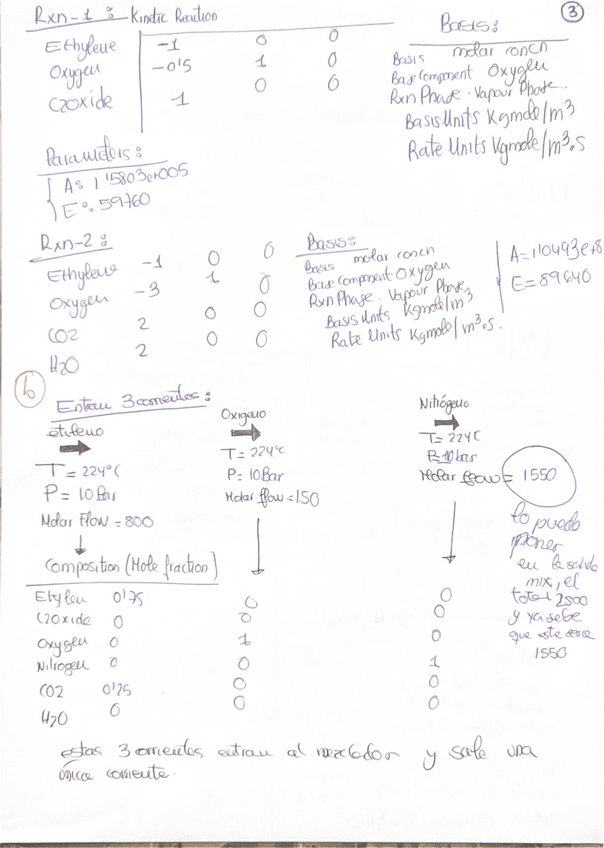 3
Rxn-1: Kinetic Reaction
Ethylene -1 0 0
Oxygen -0'5 1 0
C2oxide 1 0 0
Basis:
Basis molar concn
Base Component Oxygen
Rxn Phase. Vapour Phase
Basis Units Kgmole/m3
Rate Units Kgmole/m3.s
Parameters:
A: 1'5803e+005
E: 59760
Rxn-2:
Ethylene -1 0 0
Oxygen -3 1 0
CO2 2 0 0
H2O 2 0 0
Basis:
Basis molar concn
Base Component Oxygen
Rxn Phase. Vapour Phase
Basis Units Kgmole/m3
Rate Units Kgmole/m3.s.
A=1'0493e+8
E=89640
6
Entran 3 corrientes:
etileno
T = 224°C
P = 10 Bar
Molar Flow = 800
Oxigeno
T = 224°C
P = 10 Bar
Molar flow = 150
Nitrógeno
T = 224C
P = 10 bar
Molar flow = 1550
lo puedo
poner
en la salida
mix, el
total 2500
y ya sabe
que este sera
1550
Composition (Mole fraction)
Etylen 0'75 0 0
C2oxide 0 0 0
Oxygen 0 1 0
Nitrogen 0 0 1
CO2 0'25 0 0
H2O 0 0 0
estas 3 corrientes entran al mezclador y sale una
única corriente.